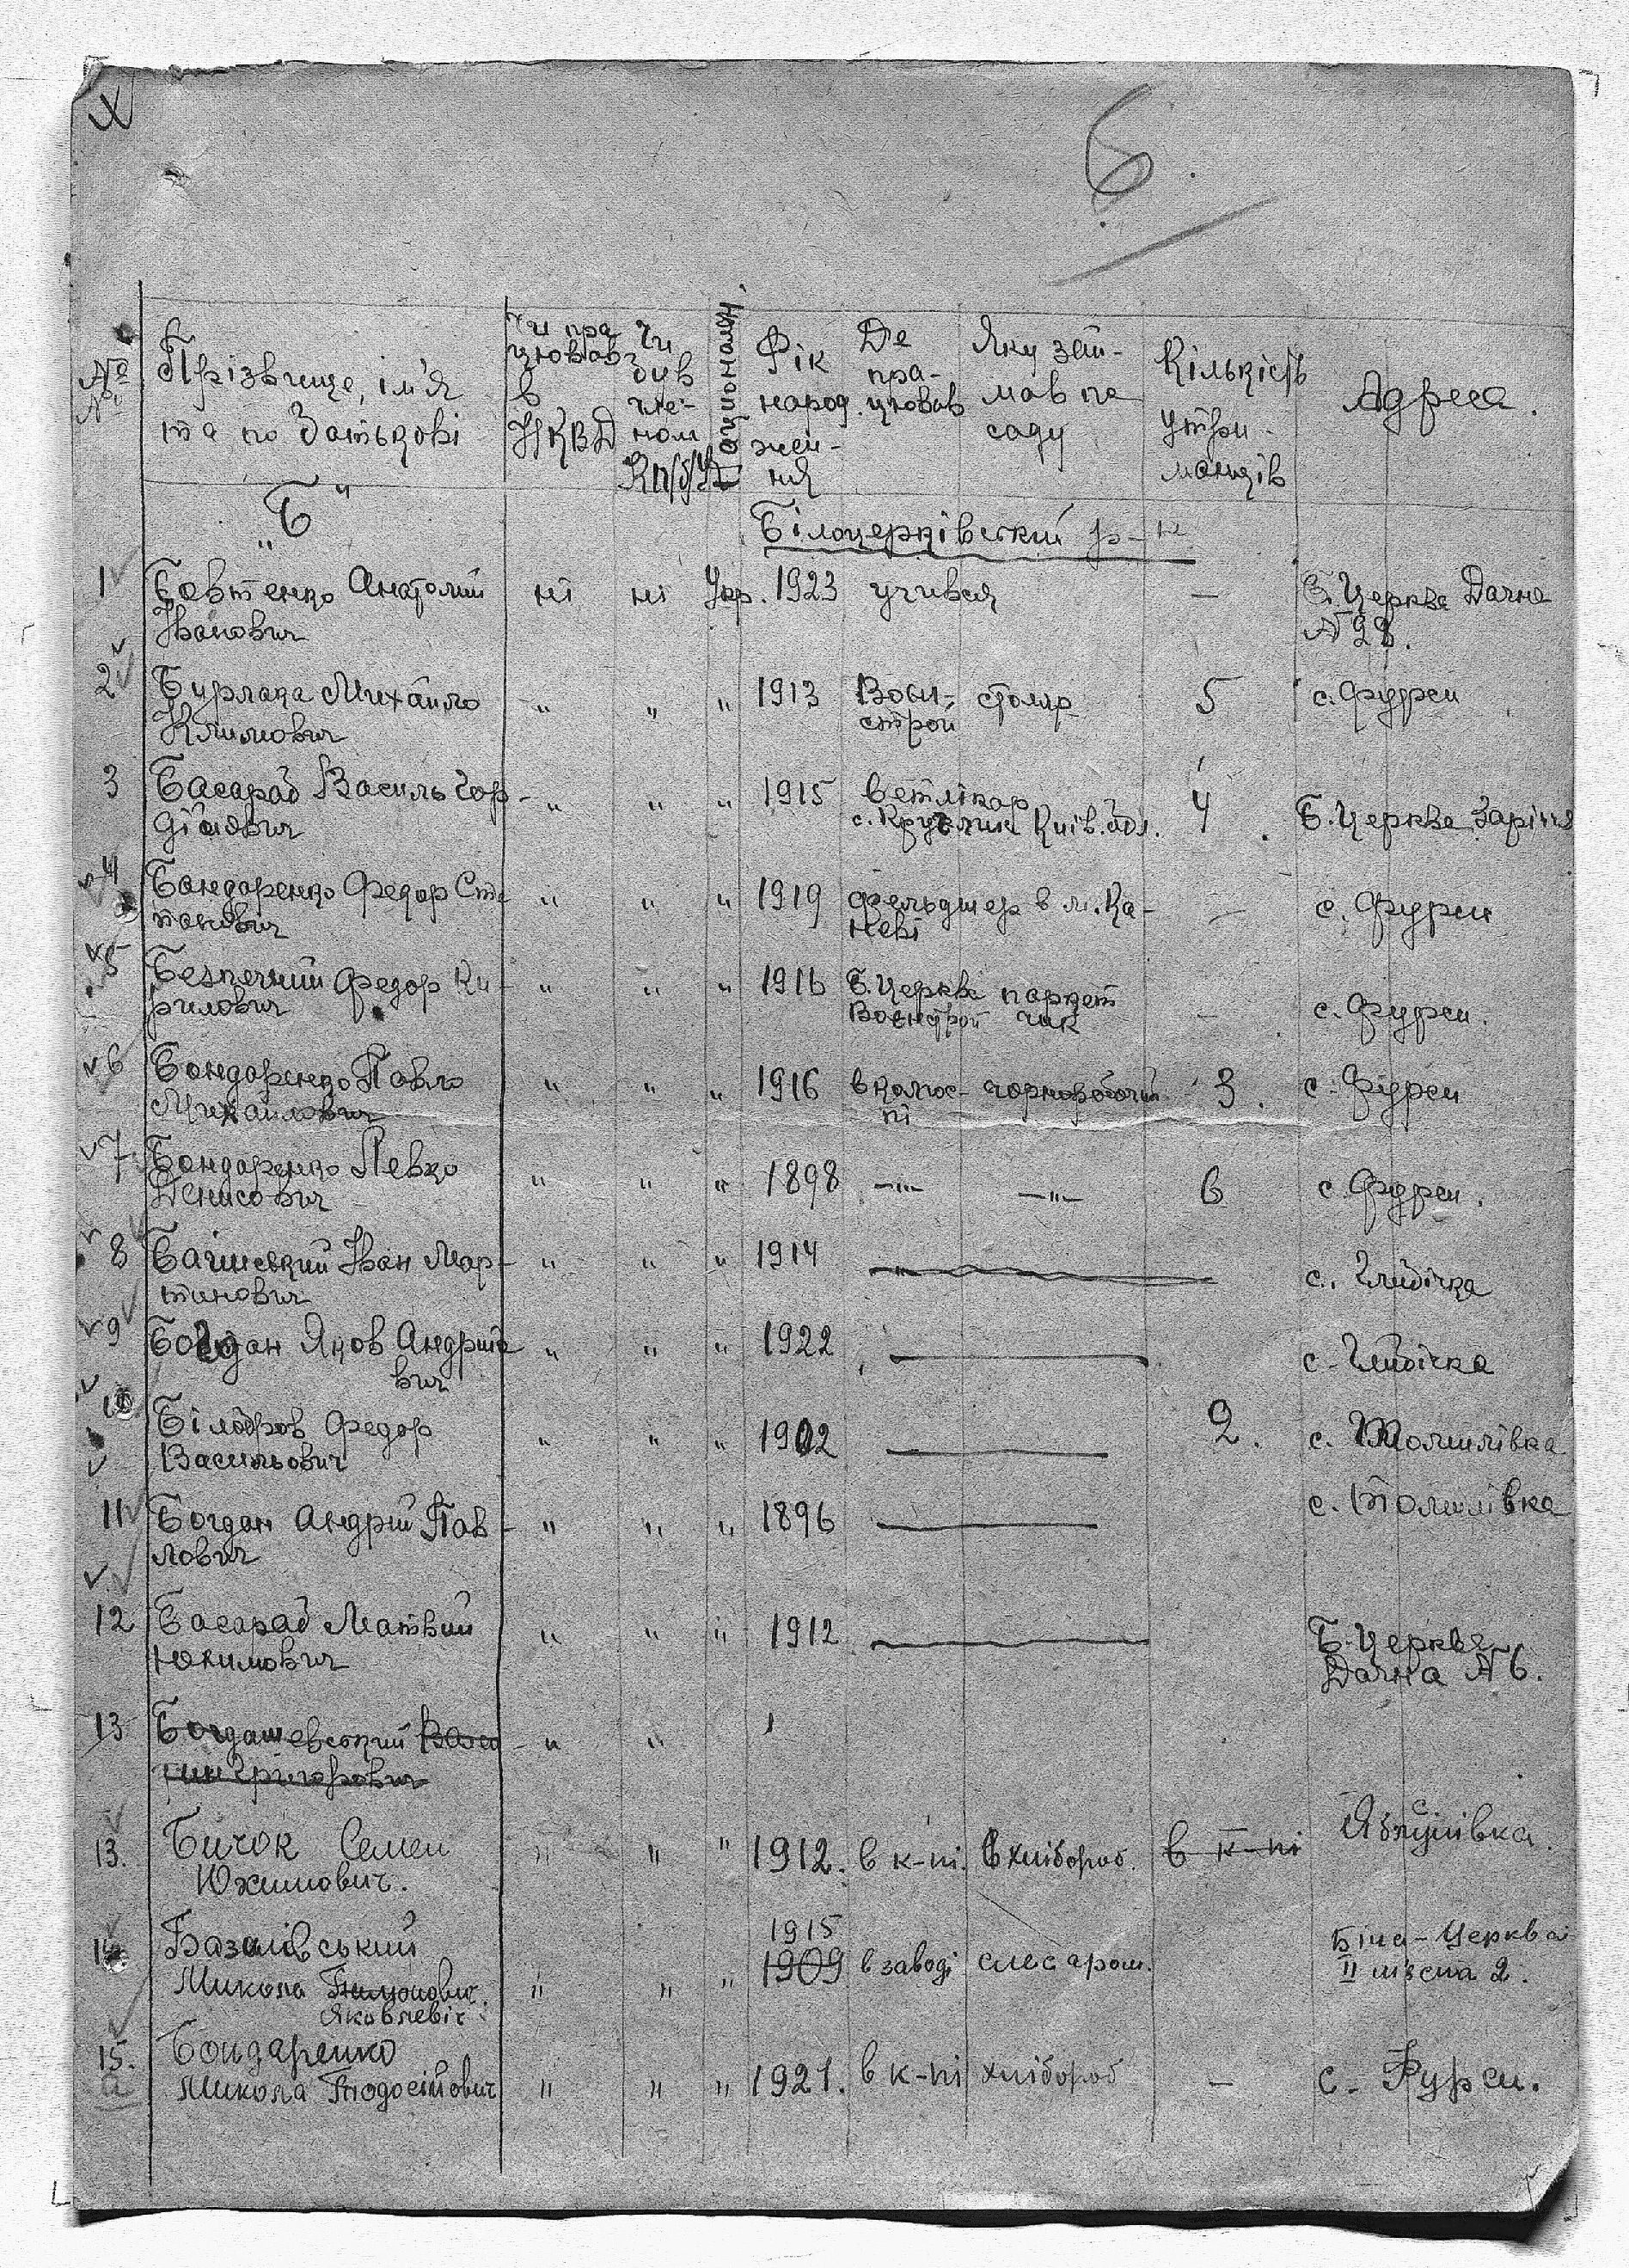 Б.
№№
Прізвище, ім'я та по батькові
Чи працював в НКВД
Чи був членом КП/б/У
Національн.
Рік народження
Де працював
Яку займав посаду
Кількість утриманців
Адреса.
„Б"
Білоцерківський р-н
1 Бовтенко Анатолий ні ні Укр. 1923 учився — Б. Церква Дачна
Іванович № 28.
2 Бурлака Михайло " " " 1913 Воєн- столяр 5 с. Фурси
Климович строй
3 Басараб Василь Гор- " " " 1915 ветлікар 4 Б. Церква Заріччя
дійович с. Круглик Київ. обл.
4 Бондаренко Федор Сте " " " 1919 фельдшер в м. Ка- — с. Фурси
панович неві
5 Безпечний Федор Ки- " " " 1916 Б. Церква паркет — с. Фурси.
рилович Воєнстрой чик
6 Бондаренко Павло " " " 1916 в колгос- чорноробочий 3. с. Фурси
Михайлович пі
7 Бондаренко Левко " " " 1898 —"— —"— 6 с. Фурси.
Денисович
8 Бачинський Іван Мар- " " " 1914 " с. Глибічка
тинович
9 Богдан Яков Андрійо " " " 1922 — с. Глибічка
вич
10 Білобров Федор " " " 1902 — 2. с. Томилівка
Васильович
11 Богдан Андрій Пав- " " " 1896 — с. Томилівка
лович
12 Басараб Матвий " " " 1912 — Б. Церква
Юхимович Дачна № 6.
13 Богдашевський " "
Григорович
13. Бичок Семен " " " 1912. в к-пі. хлібороб. в к-пі с. Яблунівка.
Юхимович.
14 Базилівський 1915 Біла-Церква
Микола " " " 1909 в заводі слесаром. II пісчна 2.
Яковлевіч.
15. Бондаренко
а Микола Тодосійович " " " 1921. в к-пі хлібороб — с. Фурси.